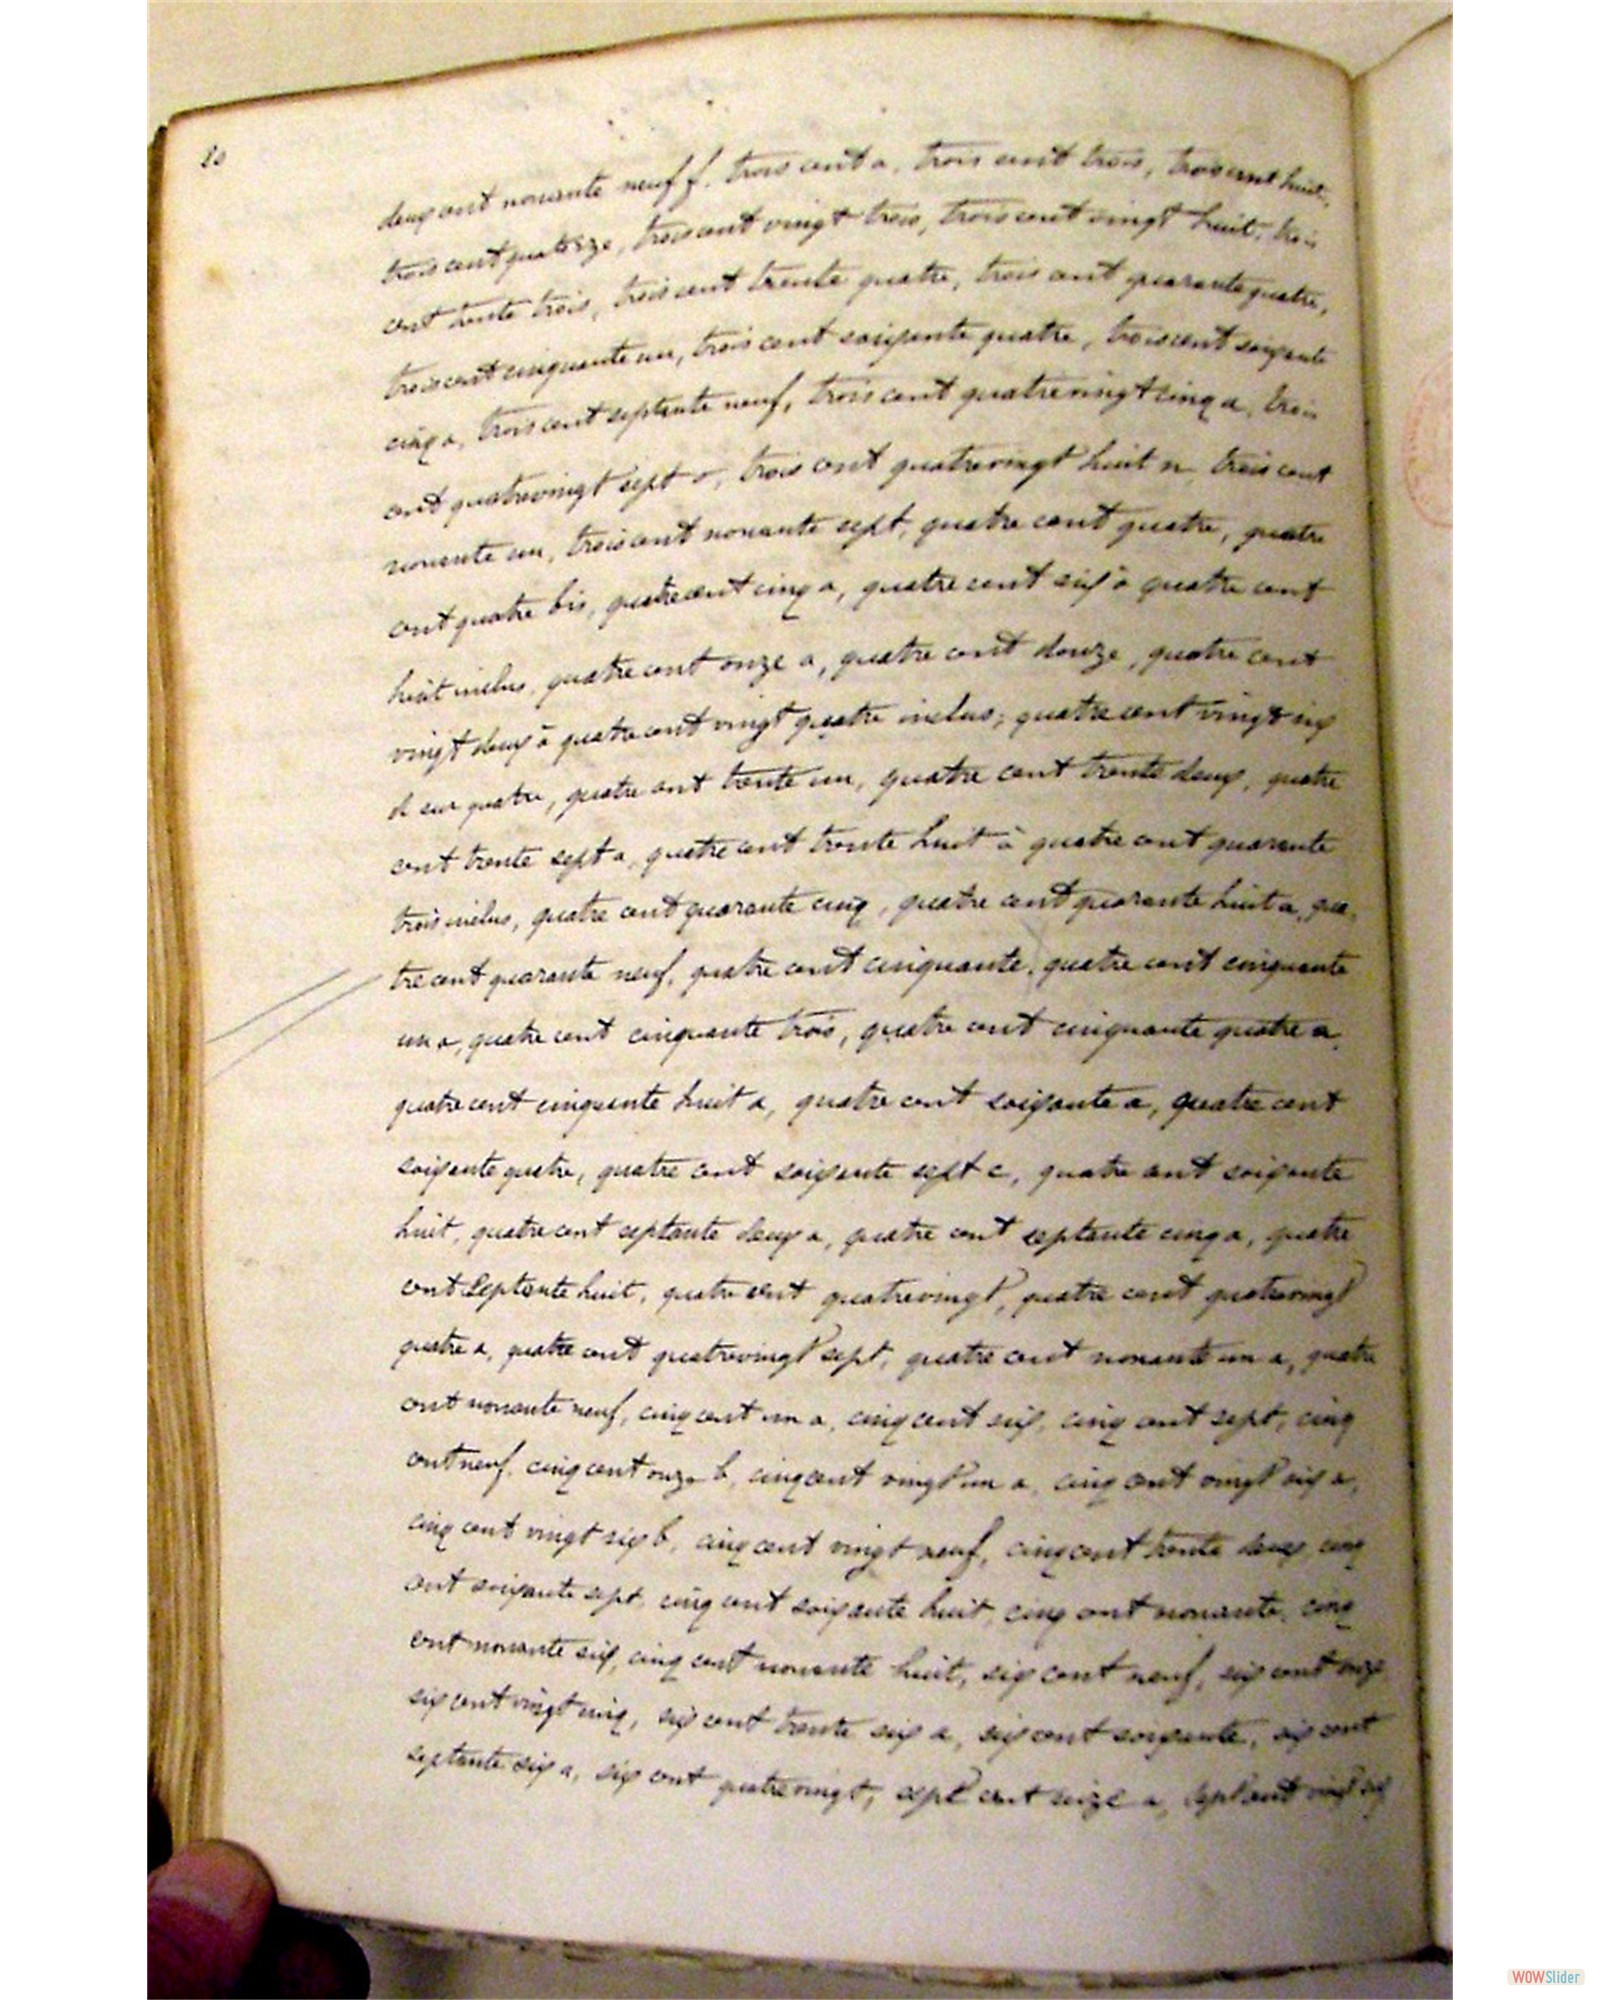 20
deux cent nonante neuf f, trois cent a, trois cent trois, trois cent huit,
trois cent quatorze, trois cent vingt trois, trois cent vingt huit, trois
cent trente trois, trois cent trente quatre, trois cent quarante quatre,
trois cent cinquante un, trois cent soixante quatre, trois cent soixante
cinq a, trois cent septante neuf, trois cent quatrevingt cinq a, trois
cent quatrevingt sept, trois cent quatrevingt huit n, trois cent
nonante un, trois cent nonante sept, quatre cent quatre, quatre
cent quatre bis, quatre cent cinq a, quatre cent six à quatre cent
huit inclus, quatre cent onze a, quatre cent douze, quatre cent
vingt deux à quatre cent vingt quatre inclus, quatre cent vingt six
d sur quatre, quatre cent trente un, quatre cent trente deux, quatre
cent trente sept a, quatre cent trente huit à quatre cent quarante
trois inclus, quatre cent quarante cinq, quatre cent quarante huit a, qua-
tre cent quarante neuf, quatre cent cinquante, quatre cent cinquante
un a, quatre cent cinquante trois, quatre cent cinquante quatre a,
quatre cent cinquante huit a, quatre cent soixante a, quatre cent
soixante quatre, quatre cent soixante sept c, quatre cent soixante
huit, quatre cent septante deux a, quatre cent septante cinq a, quatre
cent Septante huit, quatre cent quatrevingt, quatre cent quatrevingt
quatre a, quatre cent quatrevingt sept, quatre cent nonante un a, quatre
cent nonante neuf, cinq cent un a, cinq cent six, cinq cent sept, cinq
cent neuf, cinq cent onze b, cinq cent vingt un a, cinq cent vingt six a,
cinq cent vingt six b, cinq cent vingt neuf, cinq cent trente deux, cinq
cent soixante sept, cinq cent soixante huit, cinq cent nonante, cinq
cent nonante six, cinq cent nonante huit, six cent neuf, six cent onze
six cent vingt cinq, six cent trente six a, six cent soixante, six cent
septante six a, six cent quatrevingt, sept cent seize a, sept cent vingt six
WOWSlider